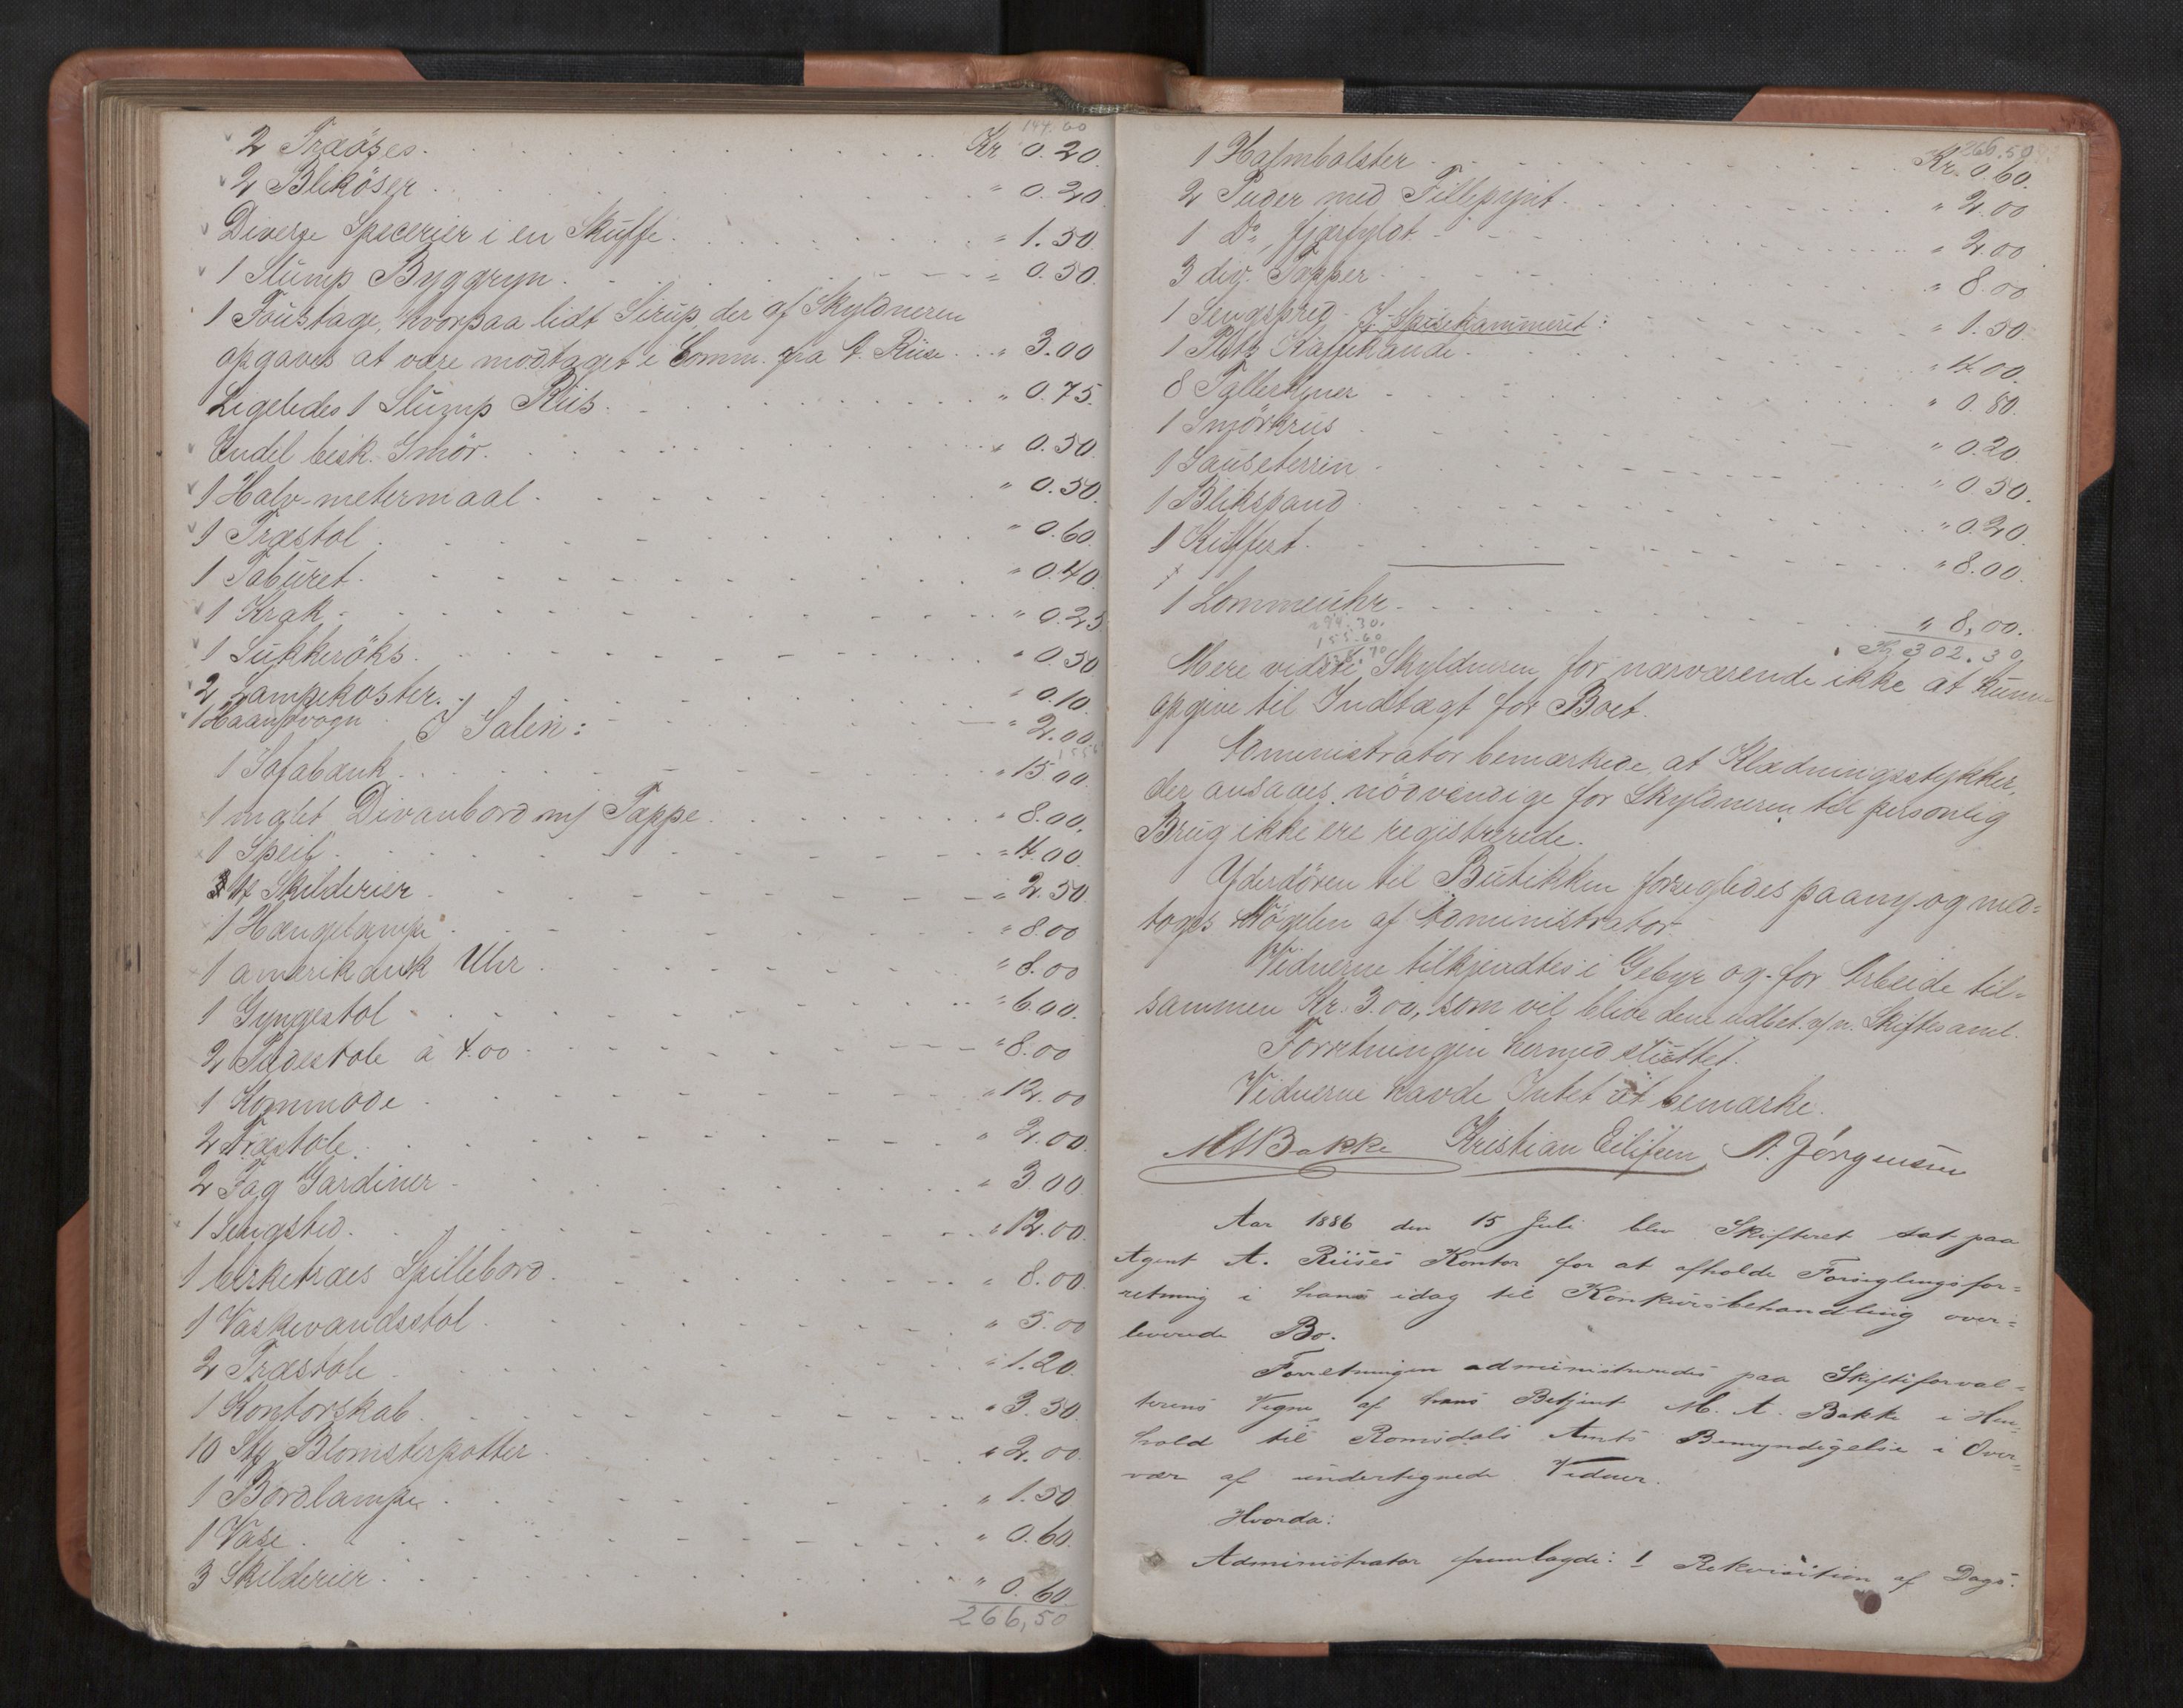 147.60
2 Træöses. Kr 0.20.
2 Bliköser " 0.20.
Diverse Specerier i en Skuffe. " 1.50.
1 Slump Byggryn. " 0.50.
1 Foustage, hvorpaa lidt Sirup, der af Skyldneren
opgaves at være modtaget i Comm. fra A. Riise. " 3.00
Ligeledes 1 Slump Riis. " 0.75.
Endel besk. Smör. " 0.50.
1 Halv-metermaal. " 0.50.
1 Træstol. " 0.60.
1 Taburet. " 0.40.
1 Krak " 0.25
1 Sukkeröks. " 0.50
2 Lampekoster. " 0.10.
1 Haandvogn " 2.00.
I Salen:
1 Sofabænk. " 15.00
1 malet Divanbord m/ Tæppe. " 8.00.
1 Speil " 4.00.
4 Skilderier " 2.50
1 Hængelampe " 8.00
1 amerikansk Uhr. " 8.00
1 Gyngestol " 6.00.
2 Pudestole à 4.00 " 8.00
1 Kommode " 12.00
2 Træstole. " 2.00
2 Fag Gardiner " 3.00
1 Sengsted. " 12.00.
1 birketræes Spillebord. " 8.00
1 Vaskevandsstol. " 5.00
2 Træstole " 1.20.
1 Kontorskab. " 3.50.
10 Stk Blomsterpotter " 2.00.
1 Bordlampe " 1.50
1 Vase. " 0.60.
3 Skilderier. " 0.60
266,50
266.50
1 Halmbolster Kr. 0.60.
2 Puder med Fillepynt. " 2.00
1 Do, fjærfyldt " 2.00
3 div. Tæpper " 8.00
1 Sengspred " 1.50.
I Spisekammeret:
1 Pletz Kaffekande. " 4.00.
8 Tallerkener " 0.80.
1 Smörkrus " 0.20
1 Sauseterrin " 0.50.
1 Blikspand " 0.20.
1 Kuffert. " 8.00.
1 Lommeuhr. " 8,00.
Kr 302.30
155.60
Mere vidste Skyldneren for nærværende ikke at kunne
opgive til Indtægt for Boet.
Administrator bemærkede, at Klædningsstykker,
der ansaaes nödvendige for Skyldneren til personlig
Brug ikke ere registrerede.
Yderdören til Butikken forsegledes paany og med=
toges Nögelen af Administrator.
Vidnerne tilkjendtes i Gebyr og for Arbeide til=
sammen Kr. 3.00, som vil blive dem udbet. af n. Skiftesaml.
Forretningen hermed sluttet.
Vidnerne havde Intet at bemærke.
M A Bakke Kristian Eilifsen A. Jörgensen
Aar 1886 den 15 Juli blev Skifteret sat paa
Agent A. Riises Kontor for at afholde Forseglingsfor=
retning i hans idag til Konkursbehandling over=
leverede Bo.
Forretningen administreredes paa Skifteforval=
terens Vegne af hans Betjent M. A. Bakke i Hen=
hold til Romsdals Amts Bemyndigelse i Over=
vær af undertegnede Vidner.
Hvorda:
Administrator fremlagde: 1 Rekvisition af Dags.